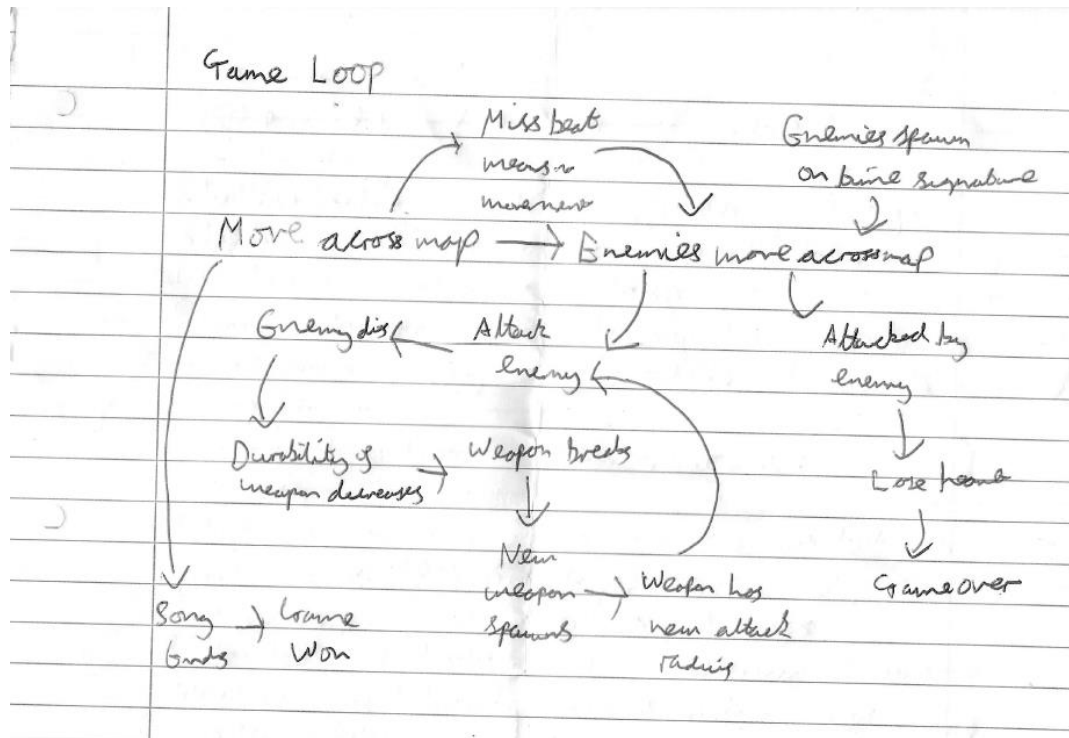 Game Loop
Miss beat
means no
movement
Enemies spawn
on time signature
Move across map
Enemies move across map
Enemy dies
Attack
enemy
Attacked by
enemy
Durability of
weapon decreases
Weapon breaks
Lose heart
New
weapon
spawns
Weapon has
new attack
radius
Game over
Song
Ends
Game
Won